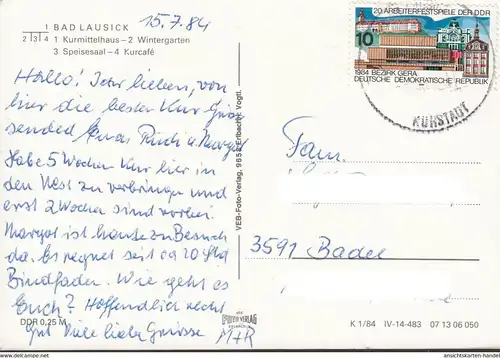 15.7.84
BAD LAUSICK
1 Kurmittelhaus – 2 Wintergarten
3 Speisesaal – 4 Kurcafé
1
2 3 4
Hallo! Ihr lieben, von
hier die besten Kur Grüße
sendet Euch Rudi u. Margot
Habe 5 Wochen Kur hier in
den Nest zu verbringen und
erst 2 Wochen sind vorbei.
Margot ist heute zu Besuch
da. Es regnet seit ca 20 Std
Bindfaden. Wie geht es
Euch? Hoffendlich recht
gut Viele liebe Grüsse
M+R
DDR 0,25 M
VEB-Foto-Verlag, 9659 Erlbach i. Vogtl.
FOTO VERLAG
20. ARBEITERFESTSPIELE DER DDR
10
1984 BEZIRK GERA
DEUTSCHE DEMOKRATISCHE REPUBLIK
KURSTADT
Fam.
3591 Badel
K 1/84 IV-14-483 07 13 06 050
© www.ansichtskarten-handel.com